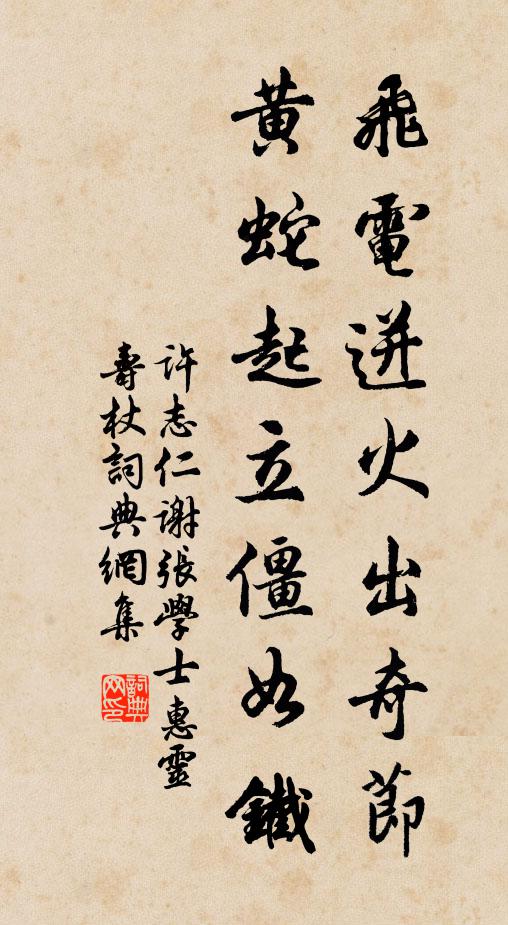 飛電迸火出奇節
黃蛇起立僵如鐵
許志仁謝張學士惠靈
壽杖詞典網集
詞典
网印